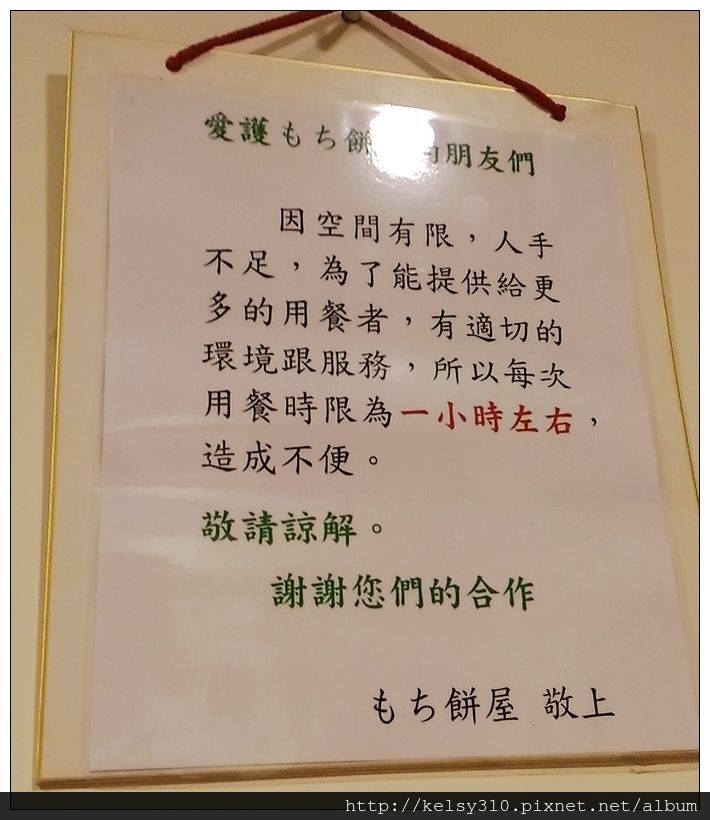 愛護もち餅 的朋友們
因空間有限，人手
不足，為了能提供給更
多的用餐者，有適切的
環境跟服務，所以每次
用餐時限為一小時左右，
造成不便。
敬請諒解。
謝謝您們的合作
もち餅屋 敬上
http://kelsy310.pixnet.net/album